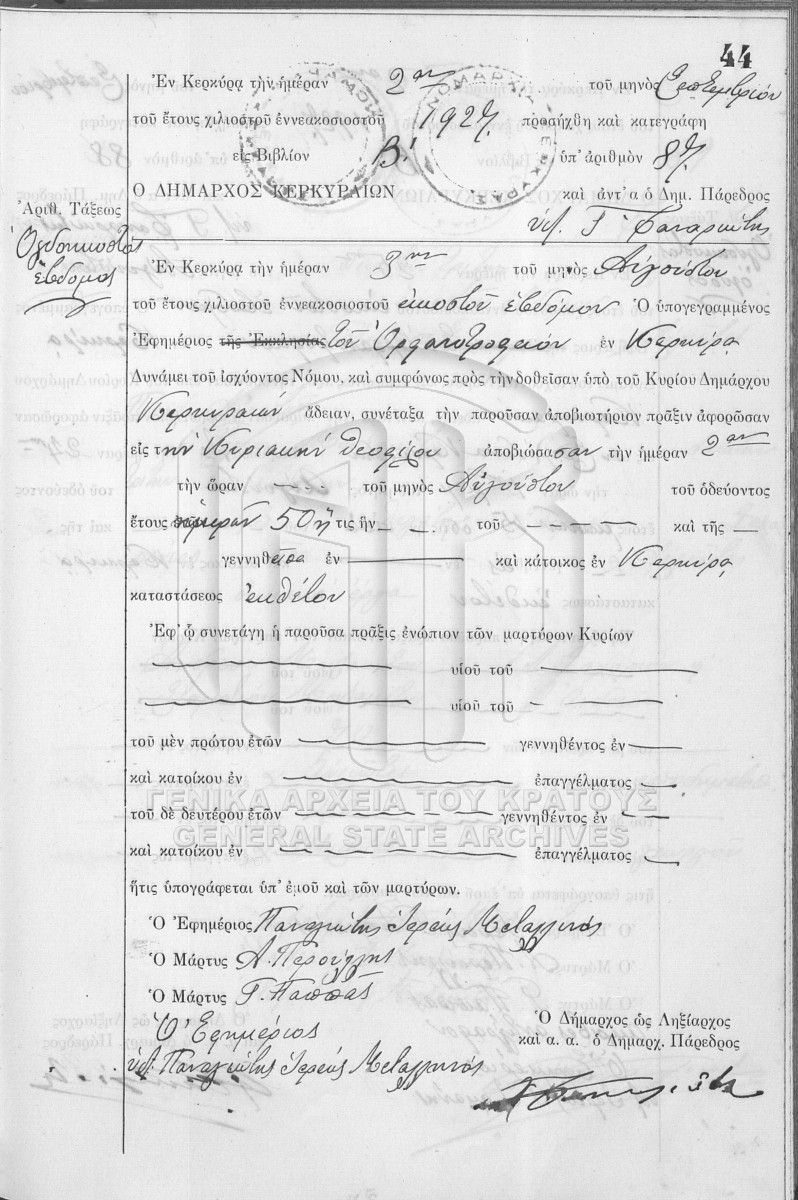 44
Ἐν Κερκύρᾳ τὴν ἡμέραν 2αν τοῦ μηνὸς Σεπτεμβρίου
τοῦ ἔτους χιλιοστοῦ ἐννεακοσιοστοῦ 1927 προσήχθη καὶ κατεγράφη
εἰς Βιβλίον Β' ὑπ' ἀριθμὸν 87
Ο ΔΗΜΑΡΧΟΣ ΚΕΡΚΥΡΑΙΩΝ καὶ ἀντ' α ὁ Δημ. Πάρεδρος
Ἀριθ. Τάξεως
Ὀγδοηκοστὸς
ἕβδομος
Ἐν Κερκύρᾳ τὴν ἡμέραν 3ην τοῦ μηνὸς Αὐγούστου
τοῦ ἔτους χιλιοστοῦ ἐννεακοσιοστοῦ εἰκοστοῦ ἑβδόμου Ὁ ὑπογεγραμμένος
Ἐφημέριος τῆς Ἐκκλησίας τοῦ Ὀρφανοτροφείου ἐν Κερκύρᾳ
Δυνάμει τοῦ ἰσχύοντος Νόμου, καὶ συμφώνως πρὸς τὴν δοθεῖσαν ὑπὸ τοῦ Κυρίου Δημάρχου
Κερκυραίων ἄδειαν, συνέταξα τὴν παροῦσαν ἀποβιωτήριον πρᾶξιν ἀφορῶσαν
εἰς τὴν Κυριακὴν Θεοφίλου ἀποβιώσασαν τὴν ἡμέραν 2αν
τὴν ὥραν τοῦ μηνὸς Αὐγούστου τοῦ ὁδεύοντος
ἔτους ἡμερῶν 50 ἥτις ἦν τοῦ καὶ τῆς
γεννηθεῖσα ἐν καὶ κάτοικος ἐν Κερκύρᾳ
καταστάσεως ἐκθέτου
Ἐφ' ᾧ συνετάγη ἡ παροῦσα πρᾶξις ἐνώπιον τῶν μαρτύρων Κυρίων
υἱοῦ τοῦ
υἱοῦ τοῦ
τοῦ μὲν πρώτου ἐτῶν γεννηθέντος ἐν
καὶ κατοίκου ἐν ἐπαγγέλματος
ΓΕΝΙΚΑ ΑΡΧΕΙΑ ΤΟΥ ΚΡΑΤΟΥΣ
τοῦ δὲ δευτέρου ἐτῶν γεννηθέντος ἐν
GENERAL STATE ARCHIVES
καὶ κατοίκου ἐν ἐπαγγέλματος
ἥτις ὑπογράφεται ὑπ' ἐμοῦ καὶ τῶν μαρτύρων.
Ὁ Ἐφημέριος Παναγιώτης Ἱερεὺς Μεταλληνός
Ὁ Μάρτυς Α. Περούλης
Ὁ Μάρτυς Γ. Παππᾶς
Ὁ Ἐφημέριος
Ὁ Δήμαρχος ὡς Ληξίαρχος
καὶ α. α. ὁ Δημαρχ. Πάρεδρος
ὑπ. Παναγιώτης Ἱερεὺς Μεταλληνός